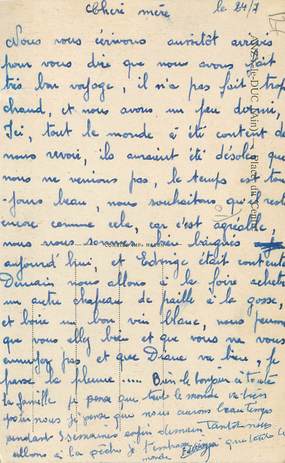 Chère mère
le 24/7
Nous vous écrivons aussitôt arrivés
pour vous dire que nous avons fait
très bon voyage, il n'a pas fait trop
chaud, et nous avons un peu dormi,
Ici, tout le monde a été content de
nous revoir, ils auraient été désolés que
nous ne venions pas, le temps est tou
-jours beau, nous souhaitons qu'il reste
encore comme cela, car c'est agréable,
nous nous sommes un peu baignés
aujourd'hui, et Edwige était contente
Demain nous allons à la foire acheter
un autre chapeau de paille à la gosse,
et boire un bon vin blanc, nous pensons
que vous allez bien et que vous ne vous
ennuyez pas et que Diane va bien, je
passe la plume....
Bien le bonjour à toute
la famille je pense que tout le monde va bien
pour nous je pense que nous aurons beau temps
pendant 3 semaines enfin demain tantôt nous
allons à la pêche je t'embrasse ainsi que toute le
monde Edwige